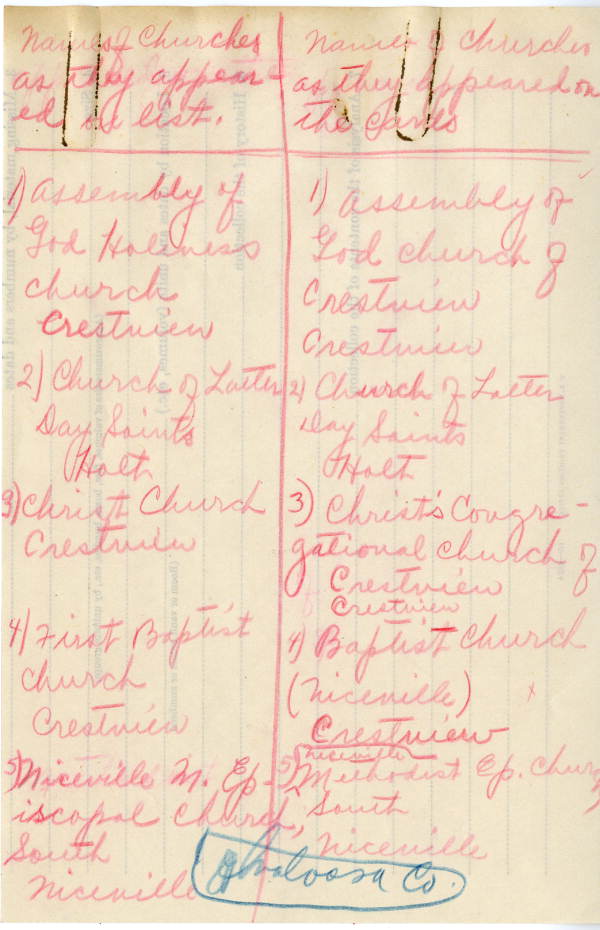 Names of Churches
as they appear-
ed on list.
1) Assembly of
God Holiness
church
Crestview
2) Church of Latter
Day Saints
Holt
3) Christ Church
Crestview
4) First Baptist
church
Crestview
5) Niceville M. Ep-
iscopal Church,
South
Niceville
Names of churches
as they appeared on
the cards
1) Assembly of
God church of
Crestview
Crestview
2) Church of Latter
Day Saints
Holt
3) Christ's Congre-
gational church of
Crestview
Crestview
4) Baptist Church
(Niceville) x
Crestview
Niceville
5) Methodist Ep. Church
South
Niceville
Okaloosa Co.